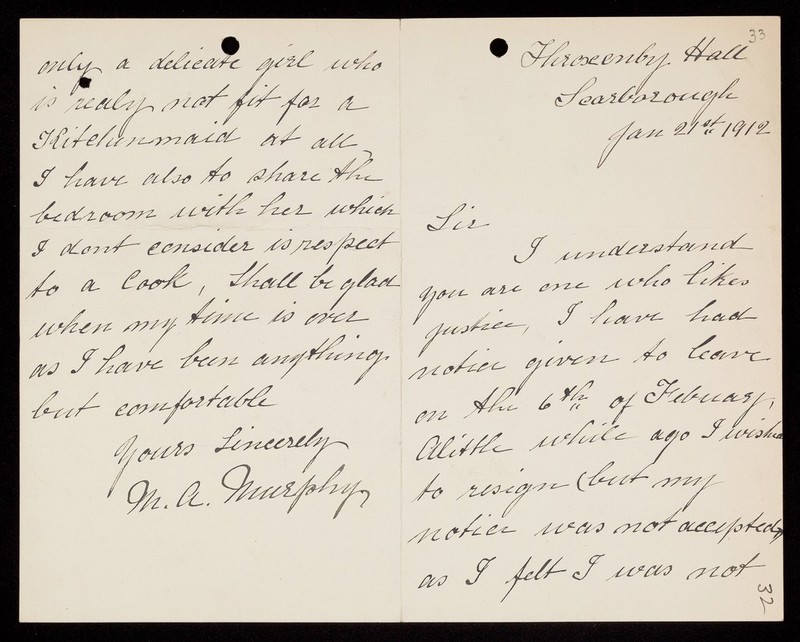 33
Throxenby Hall
Scarborough
Jan 21st 1912
Sir
I understand
you are one who likes
justice, I have had
notice given to leave
on the 6th of Febuary,
Alittle while ago I wished
to resign (but my
notice was not accepted)
as I felt I was not
32
only a delicate girl who
is realy not fit for a
Kitchenmaid at all
I have also to share the
bedroom with her which
I dont consider is respect
to a Cook, Shall be glad
when my time is over
as I have been anything
but comfortable
Yours Sincerely
M. A. Murphy